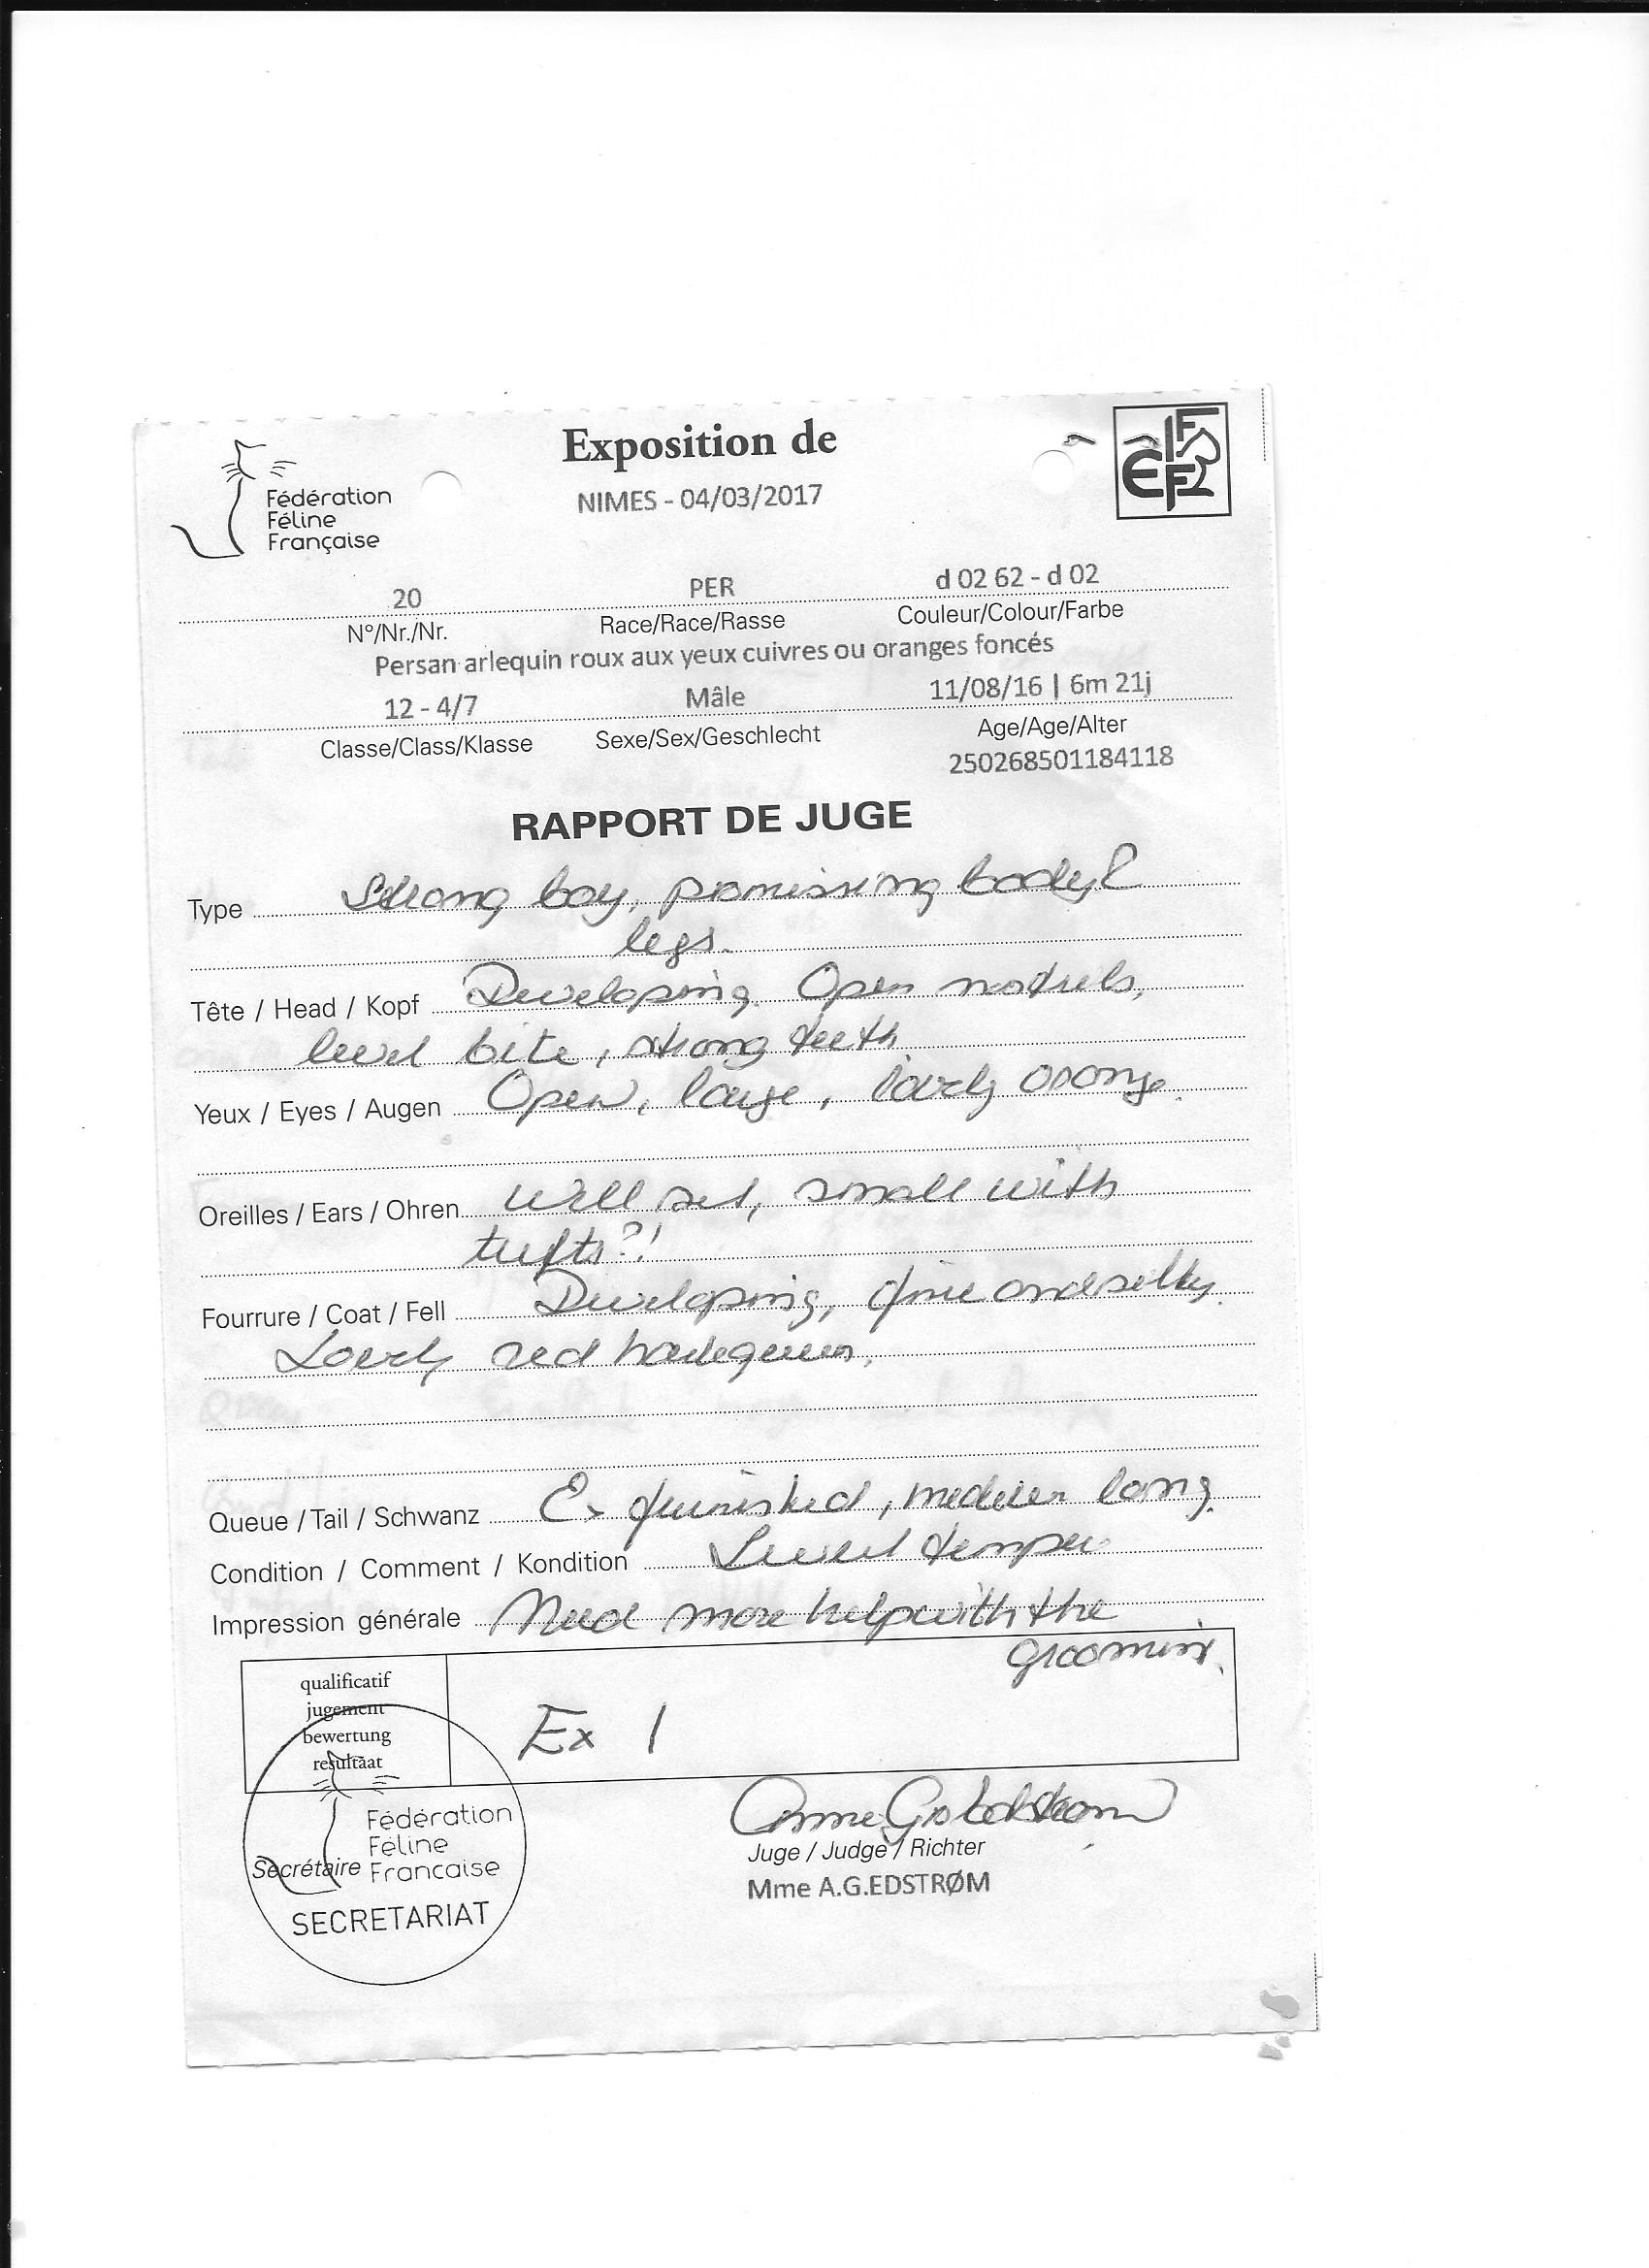 Exposition de
NIMES - 04/03/2017
Fédération
Féline
Française
FIFe
20 PER d 02 62 - d 02
N°/Nr./Nr. Race/Race/Rasse Couleur/Colour/Farbe
Persan arlequin roux aux yeux cuivres ou oranges foncés
12 - 4/7 Mâle 11/08/16 | 6m 21j
Classe/Class/Klasse Sexe/Sex/Geschlecht Age/Age/Alter
250268501184118
RAPPORT DE JUGE
Type Strong boy, promissing body &
legs.
Tête / Head / Kopf Developing. Open nostrels,
level bite, strong teeth
Yeux / Eyes / Augen Open, large, lovely orange.
Oreilles / Ears / Ohren Well set, small with
tufts?!
Fourrure / Coat / Fell Developing, fine and silky.
Lovely red harlequin.
Queue / Tail / Schwanz Ex furnished, medium long.
Condition / Comment / Kondition Sweet temper
Impression générale Need more help with the
grooming.
qualificatif
jugement
bewertung
resultaat
Ex 1
Fédération
Féline
Secrétaire Francaise
SECRETARIAT
Juge / Judge / Richter
Mme A.G.EDSTRØM